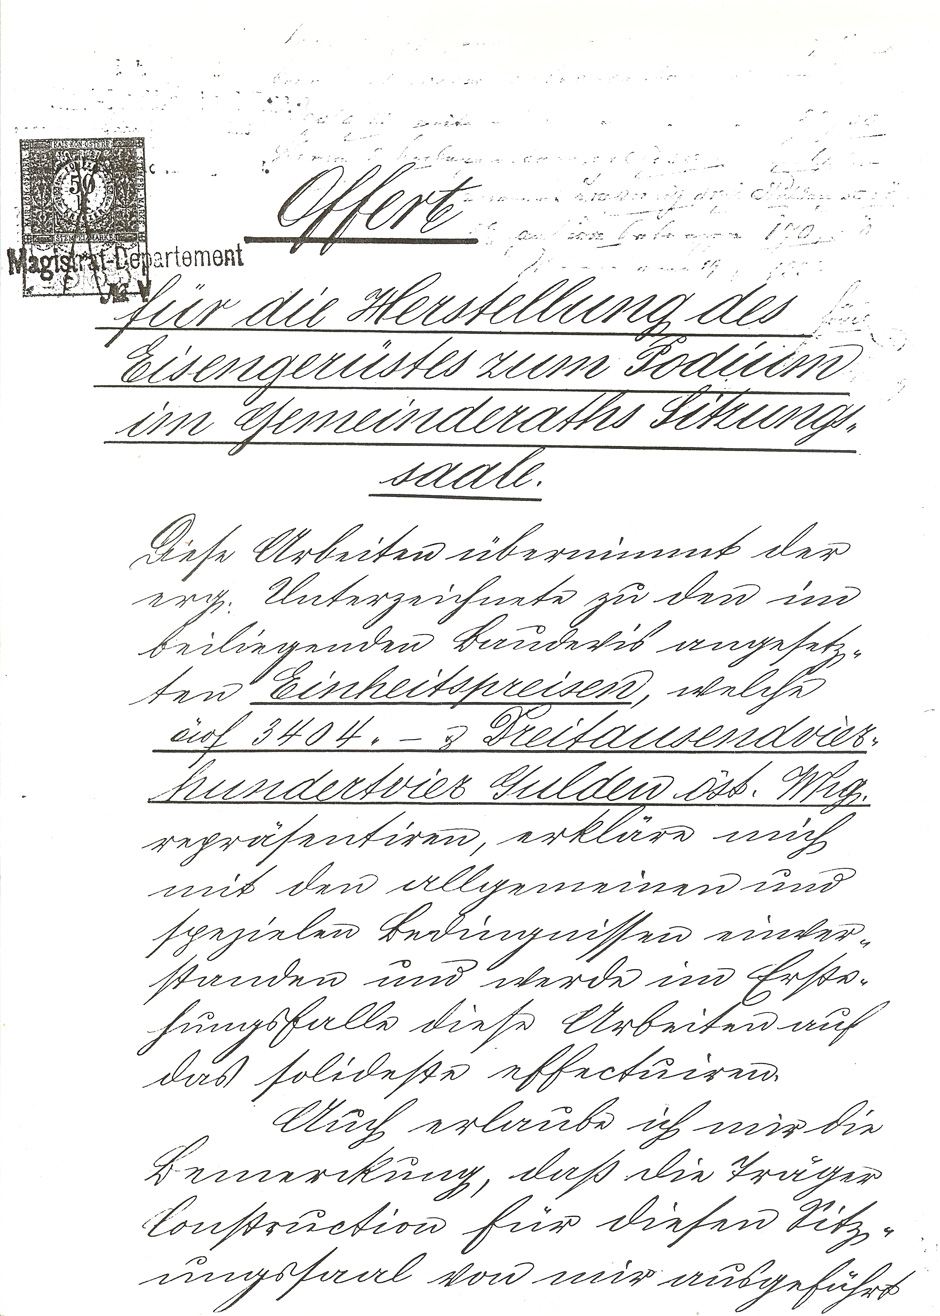 KAIS. KÖN. ÖSTERR.
50
STEMPELMARKE
Magistrat-Departement
No V
Offert
für die Herstellung des
Eisengerüstes zum Podium
im Gemeinderaths Sitzungs-
saale.
Diese Arbeiten übernimmt der
erg. Unterzeichnete zu den im
beiliegenden Baudevis angesetz-
ten Einheitspreisen, welche
auf 3404. – Dreitausendvier-
hundertvier Gulden öst. Wrg.
repräsentiren, erkläre mich
mit den allgemeinen und
spezielen Bedingnissen einver-
standen und werde im Erste-
hungsfalle diese Arbeiten auf
das solideste effectuiren.
Auch erlaube ich mir die
Bemerkung, daß die Träger
Construction für diesen Sitz-
ungssaal von mir ausgeführt